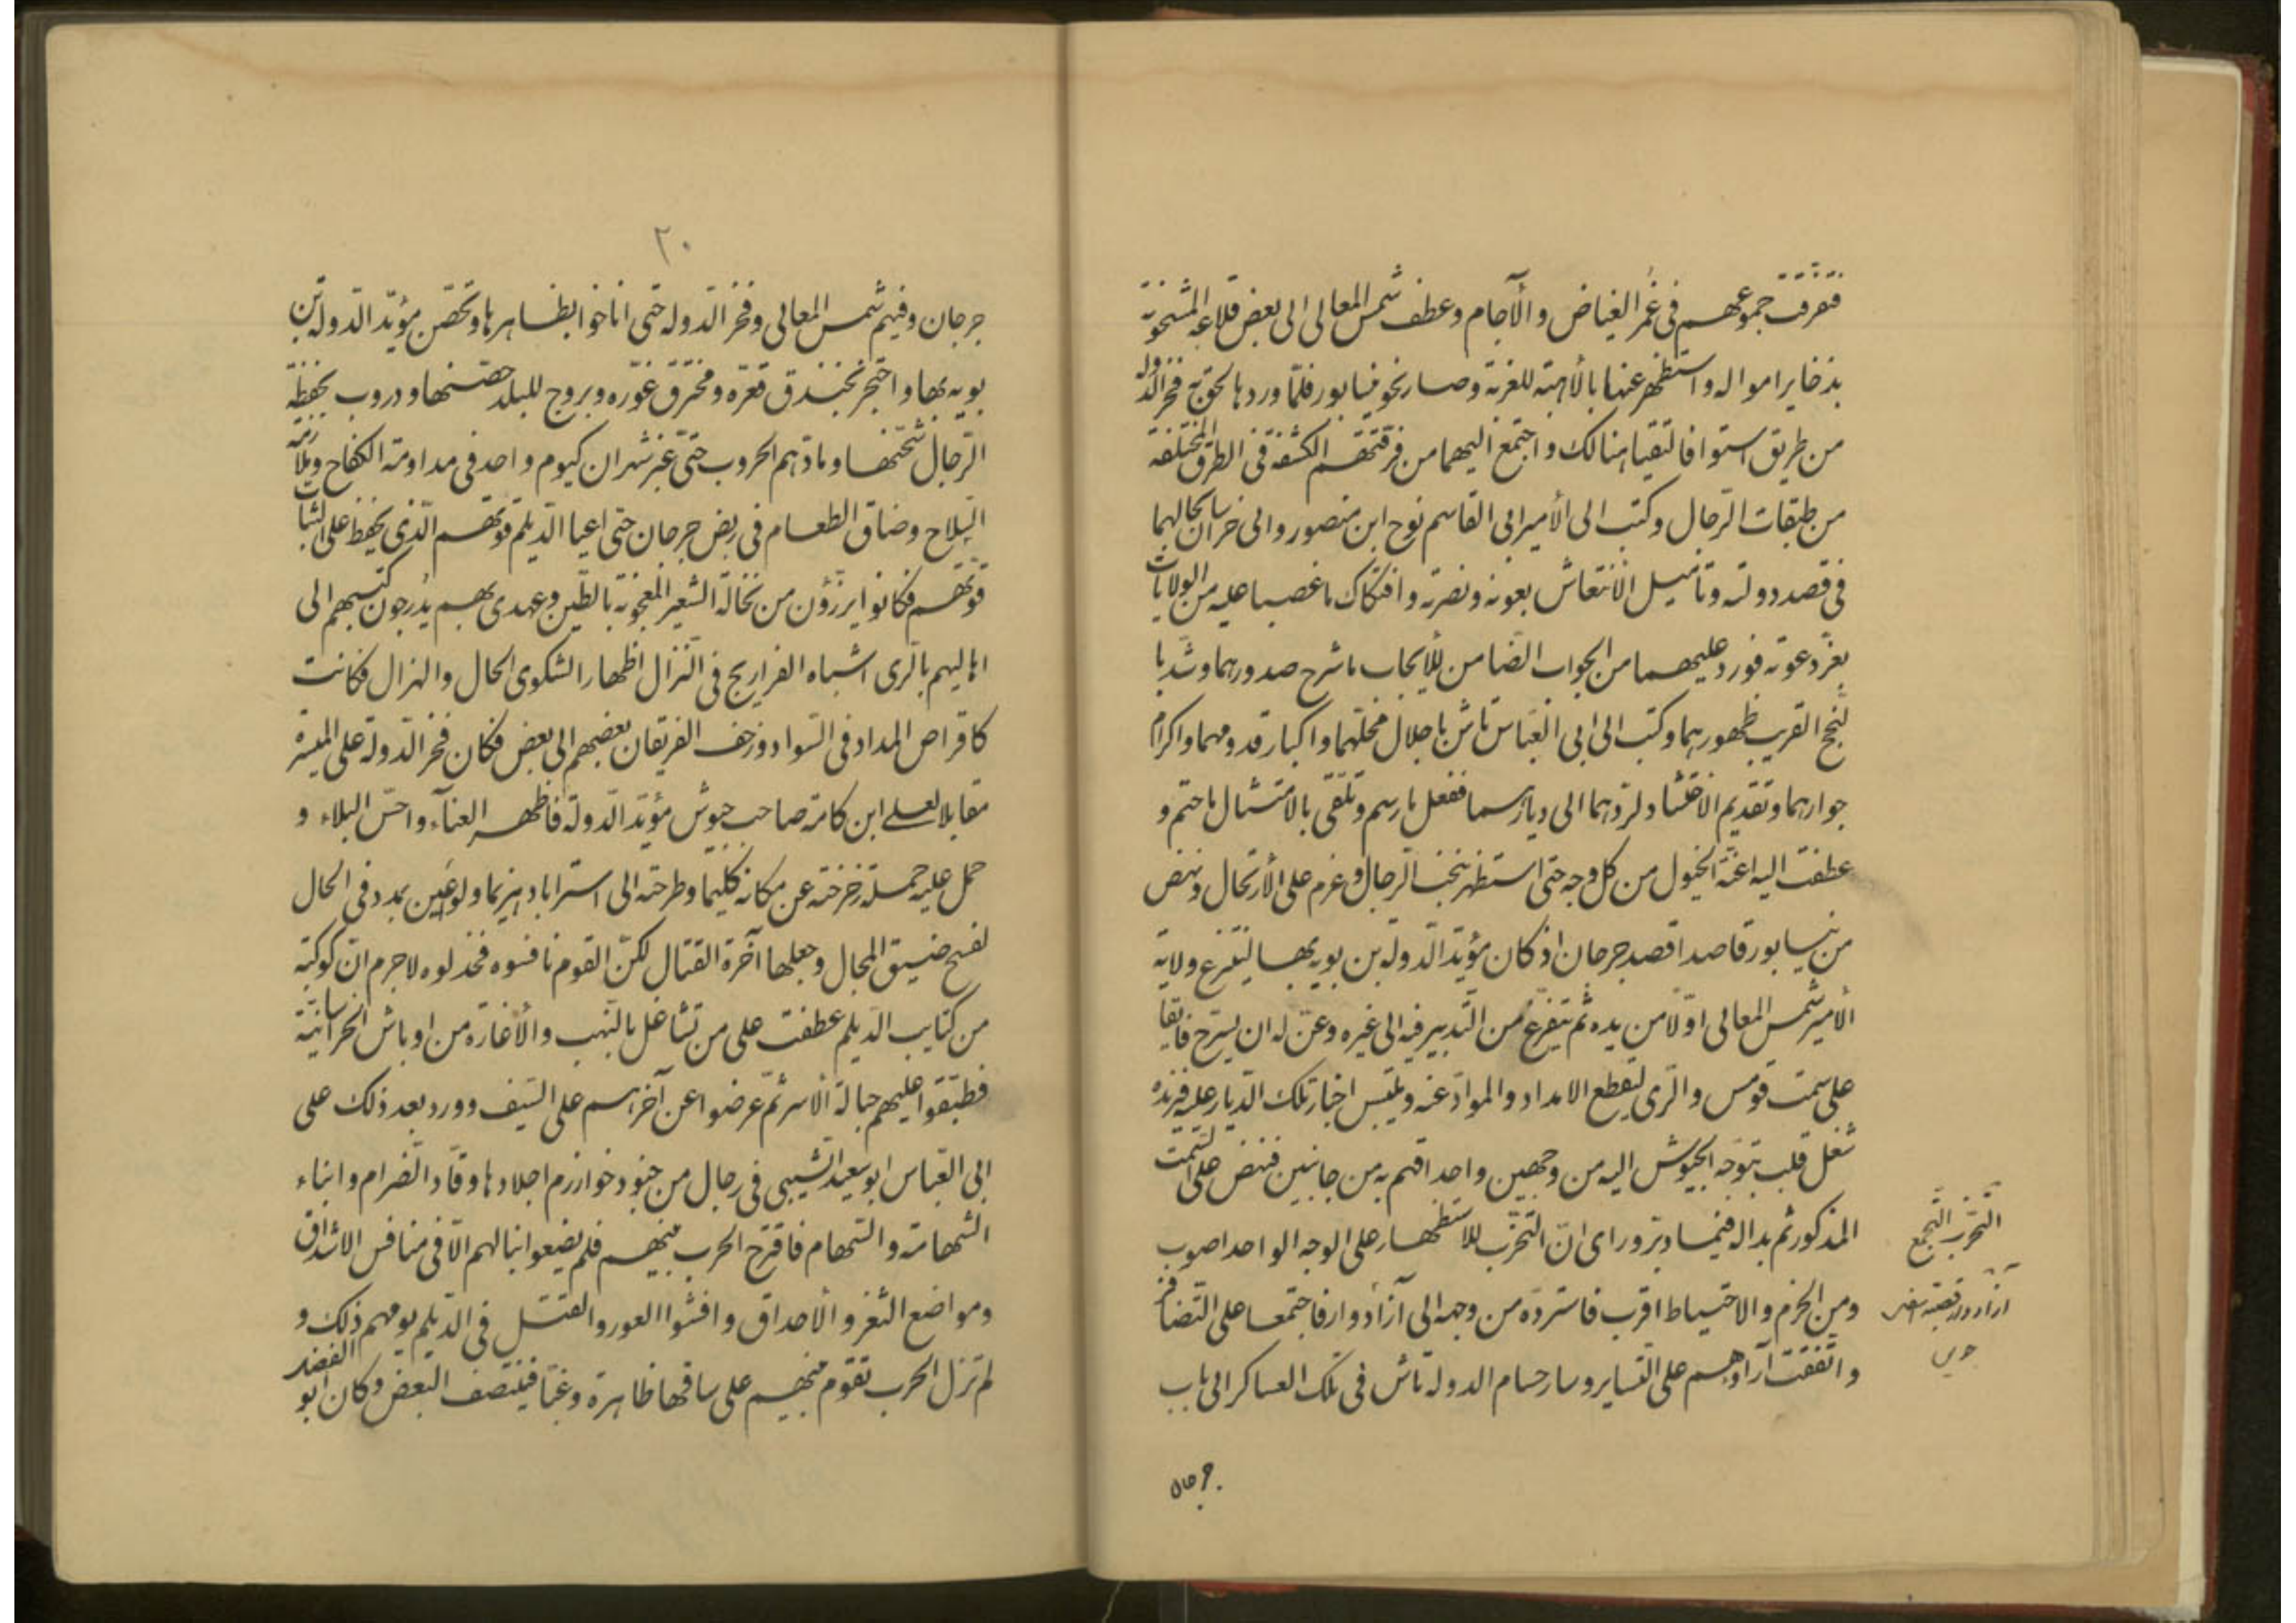 فتفرقت جموعهم في غمر الغياض والآجام وعطف شمس المعالى الى بعض قلاعه المشحونة
بذخاير امواله واستظهر عنها بالأهبة للغربة وصار نحو نيسابور فلمّا وردها لحق به فخر الدولة
من طريق استوا فالتقيا هنالك واجتمع اليهما من فرقتهم الكشفة فى الطرق المختلفة
من طبقات الرجال وكتب الى الأمير ابى القاسم نوح ابن منصور والى خراسان بحالهما
فى قصد دولته وتأميل الانتعاش بعونه ونصرته وافتكاك ما غصبا عليه من الولايات
بعزّ دعوته فورد عليهما من الجواب الضامن للأيجاب ما شرح صدورهما وشدّ با
لنجح القريب ظهورهما وكتب الى ابى العبّاس تاش باجلال محلّهما واكبار قدومهما واكرام
جوارهما وتقديم الاحتشاد لردّهما الى ديارهما ففعل ما رسم وتلقى بالامتثال ما حتم و
عطفت اليه اعنّة الخيول من كل وجه حتى استظهر بنخب الرجال وعزم على الأرتحال ونهض
من نيسابور قاصدا قصد جرجان اذ كان مؤيّد الدولة بن بويه بها لينتزع ولاية
الأمير شمس المعالى اوّلا من يده ثم يتفرغ من التدبير فيه الى غيره وعنّ له ان يسرّح فايقا
على سمت قومس والرى ليقطع الامداد والموادّ عنه ويلتبس اخبار تلك الديار عليه فيزيده
شغل قلب بتوجّه الجيوش اليه من وجهين واحداقهم به من جانبين فنهض على السّمت
المذكور ثم بدا له فيما دبّر ورأى انّ التحزّب للاستظهار على الوجه الواحد اصوب
ومن الحزم والاحتياط اقرب فاستردّه من وجهه الى آزاد وار فاجتمعا على التضافر
واتفقت آراؤهم على التساير وسار حسام الدولة تاش فى تلك العساكر الى باب
التحزب التجمع
جرجان
٢٠
جرجان وفيهم شمس المعالى وفخر الدولة حتى اناخوا بظاهرها وتحصّن مؤيّد الدولة بن
بويه بها واحتجر بخندق قعّره ومخترق غوّره وبروج للبلد حصّنها ودروب بحفظة
الرّجال شحّنها ومادّهم الحروب حتّى غبر شهران كيوم واحد فى مداومة الكفاح وملازمة
السّلاح وضاق الطعام فى ربض جرجان حتى اعيا الديلم قوتهم الّذى يحفظ على الثبات
قوّتهم فكانوا يرزؤن من نخالة الشعير المعجونة بالطين وعهدى بهم يدرجون كتبهم الى
اهاليهم بالرى اشباه الفراريج فى النزال اظهارا لشكوى الحال والهزال فكانت
كاقراص المداد فى السّواد وزحف الفريقان بعضهم الى بعض فكان فخر الدولة على الميسرة
مقابلا لعلى ابن كامة صاحب جيوش مؤيّد الدولة فاظهر العناء واحسّ البلاء و
حمل عليه حملة زحزحته عن مكانه كليما وطرحته الى استراباد هزيما ولو اعين بمدد فى الحال
لفسح ضيق المجال وجعلها آخرة القتال لكنّ القوم نافسوه فخذلوه لا جرم انّ كوكبة
من كتايب الديلم عطفت على من تشاغل بالنهب والأغارة من اوباش الخراسانيّة
فطبّقوا عليهم حبالة الأسر ثمّ عرضوا عن آخرهم على السّيف وورد بعد ذلك على
ابى العبّاس ابو سعيد الشيبى فى رجال من جنود خوارزم اجلادها وقّاد الضرام وابناء
الشهامة والسّهام فاقترح الحرب منهم فلم يضعوا نبالهم الّا فى منافس الاشداق
ومواضع الثغر والأحداق وافشوا العور والقتل فى الديلم يومهم ذلك و
لم تزل الحرب تقوم منهم على ساقها ظاهرة وغبّا فينتصف البعض وكان ابو الفضل